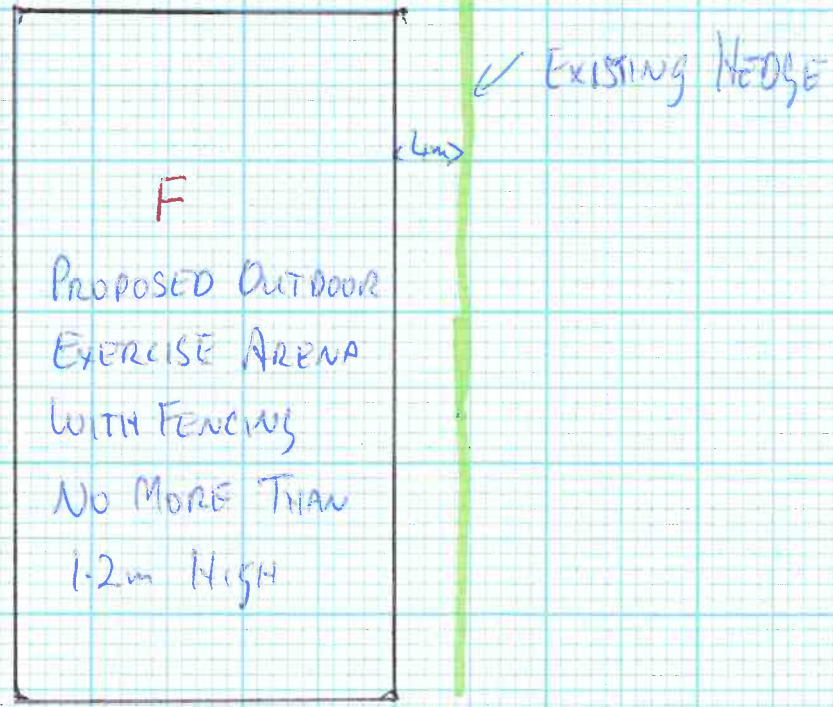 EXISTING HEDGE
4m
F
PROPOSED OUTDOOR
EXERCISE ARENA
WITH FENCING
NO MORE THAN
1.2m HIGH